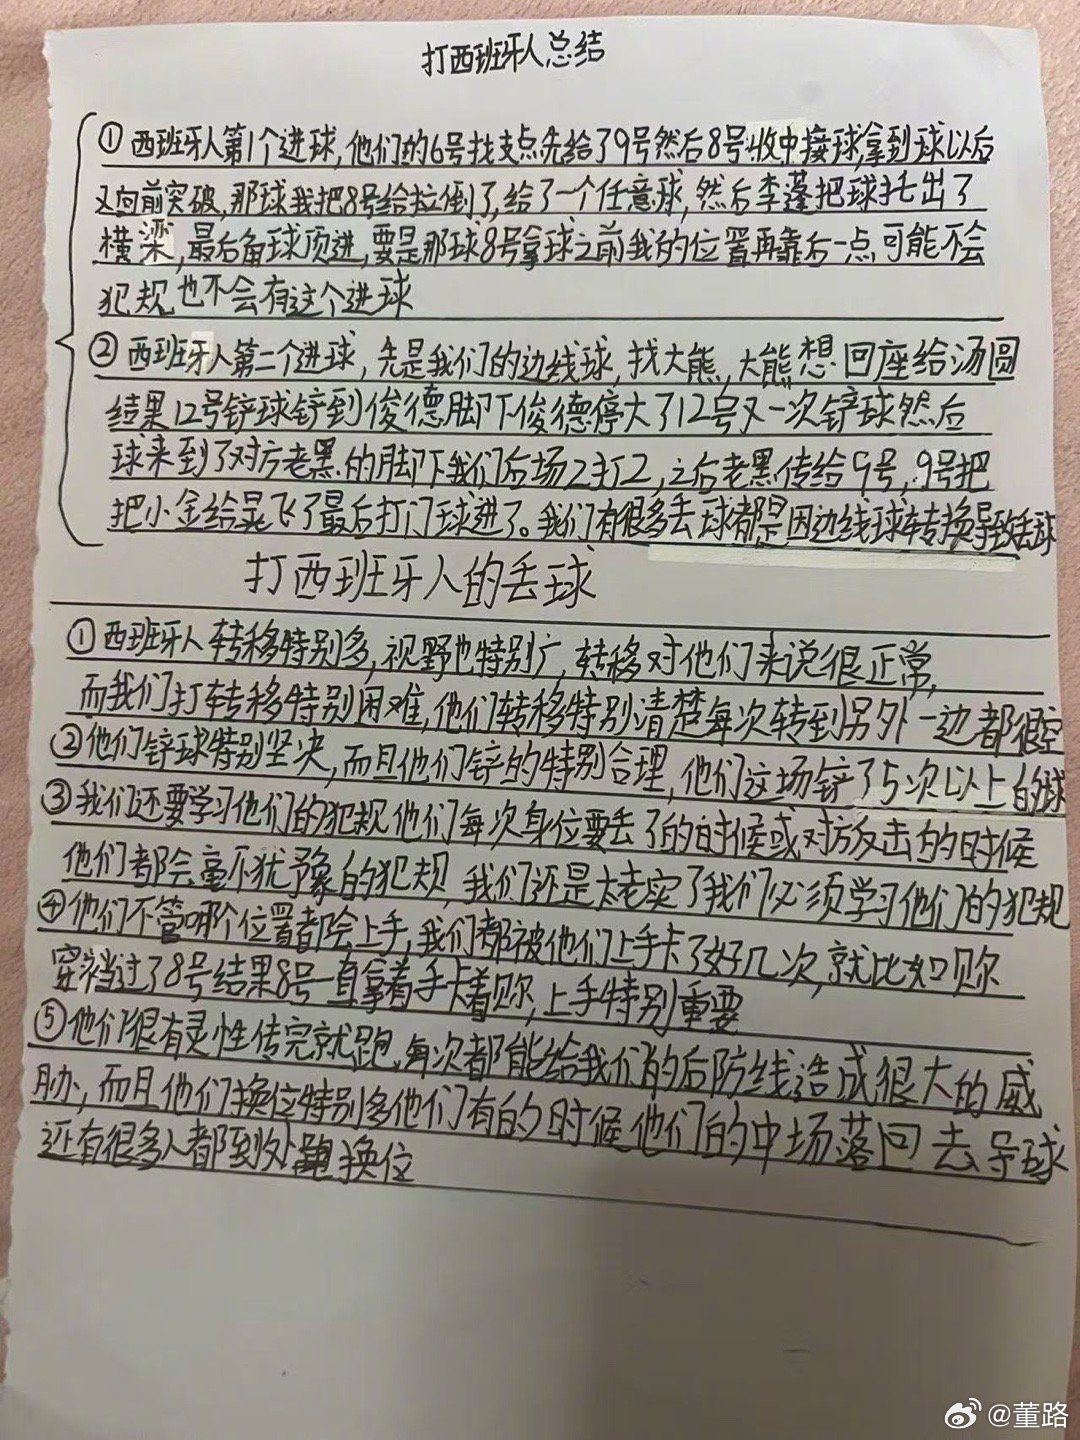 打西班牙人总结
①西班牙人第1个进球,他们的6号找支点先给了9号然后8号收中接球,拿到球以后
又向前突破,那球我把8号给拉倒了,给了一个任意球,然后李蓬把球托出了
横梁,最后角球顶进,要是那球8号拿球之前我的位置再靠后一点可能不会
犯规也不会有这个进球
②西班牙人第二个进球,先是我们的边线球,找大熊,大熊想回座给汤圆
结果12号铲球铲到俊德脚下俊德停大了12号又一次铲球然后
球来到了对方老黑的脚下我们后场2打2,之后老黑传给9号,9号把
把小金给晃飞了最后打门球进了。我们有很多丢球都是因边线球转换导致丢球
打西班牙人的丢球
①西班牙人转移特别多,视野也特别广,转移对他们来说很正常,
而我们打转移特别困难,他们转移特别清楚每次转到另外一边都很空
②他们铲球特别坚决,而且他们铲的特别合理,他们这场铲了5次以上的球
③我们还要学习他们的犯规他们每次身位要丢了的时候或对方反击的时候
他们都会毫不犹豫的犯规,我们还是太老实了我们必须学习他们的犯规
④他们不管哪个位置都会上手,我们都被他们上手卡了好几次,就比如贝尔
穿裆过了8号结果8号一直拿着手卡着贝尔,上手特别重要
⑤他们很有灵性传完就跑,每次都能给我们的后防线造成很大的威
胁,而且他们换位特别多他们有的时候他们的中场落回去导球
还有很多人都到处跑换位
@董路